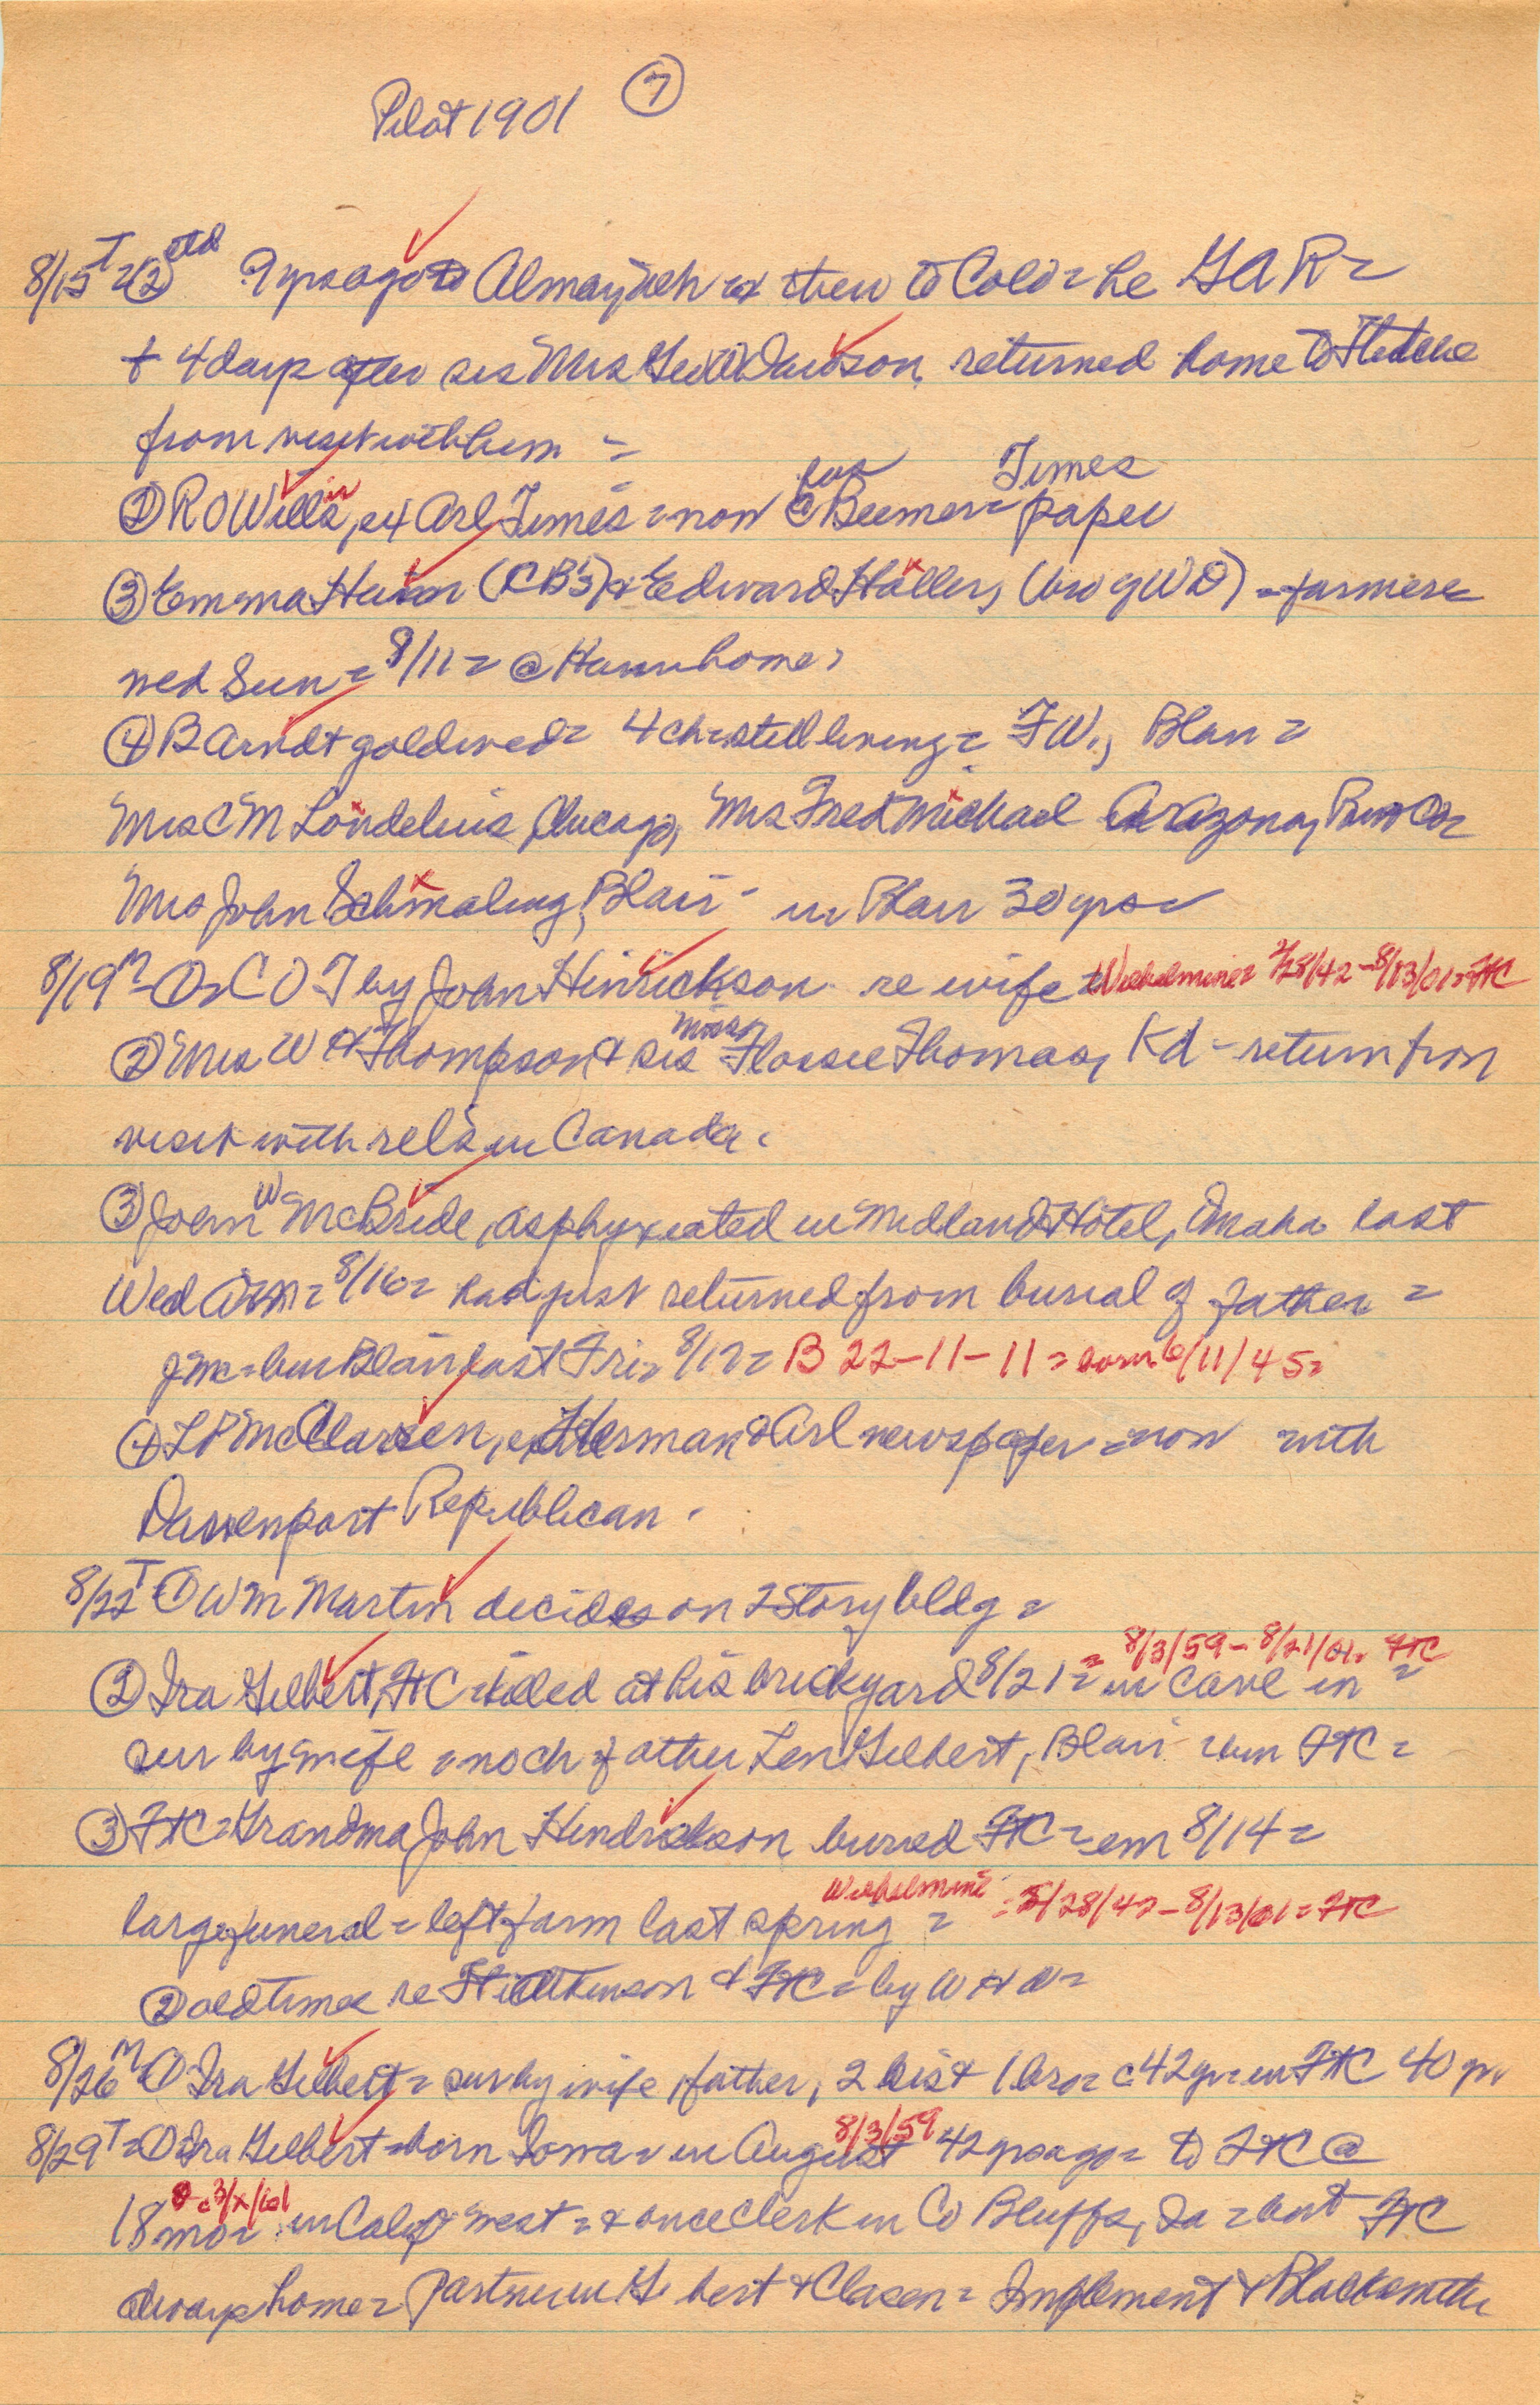 Pilot 1901 ⑦
8/15 T = ② ctd 9 yrs ago to Alma, Neb & then to Colo = he GAR =
+ 4 days after sis Mrs Geo W Dawson, returned home to
from visit with him =
② R O Willis, ex Arl Times = now pub @ Beemer = Times paper
③ Emma (CB's) & Edward Haller, (bro of WD) = farmers =
wed Sun = 8/11 = @ home =
④ B Arndt gold wed = 4 ch = still living = FW, Blair =
Mrs C M Londelius, Chicago, Mrs Fred Michael Arizona,
Mrs John Schmaling, Blair - in Blair 30 yrs =
8/19 M - ① = C O T by John Hinrickson re wife = Wilhelmine = 28/42 - 8/13/01 = FtC
② Mrs W H Thompson & sis Miss Flossie Thomas, Kd - return from
visit with rels in Canada.
③ John W McBride, asphyxiated in Midland Hotel, Omaha last
Wed am = 8/16 = had just returned from burial of father =
= bur Blair last Fri = 8/17 = B 22-11-11 = born 6/11/45 =
④ L P McClarsen, ex Herman & Arl newspaper = now with
Davenport Republican.
8/22 T ① Wm Martin decides on 2 story bldg =
② Ira Gilbert, FtC = killed at his brickyard 8/21 = in cave in = 8/3/59 - 8/21/01 = FtC
sur by wife = no ch = father Len Gilbert, Blair = bur FtC =
③ FtC = Grandma John Hendrickson buried FtC = cem 8/14 =
large funeral = left farm last spring = Wilhelmine = 5/28/42 - 8/13/01 = FtC
② old times re Ft Atkinson & FtC = by W H W =
8/26 M - ① Ira Gilbert = sur by wife, father, 2 sis & 1 bro = c 42 yr = in FtC 40 yr
8/29 T = ① Ira Gilbert = born Iowa = in August 8/3/59 42 yrs ago = to FtC @
18 mo = c 3/x/61 in Calif west = & once clerk in Co Bluffs, Ia = but FtC
always home = Partner in G bert & Clasen = Implement & Blacksmith